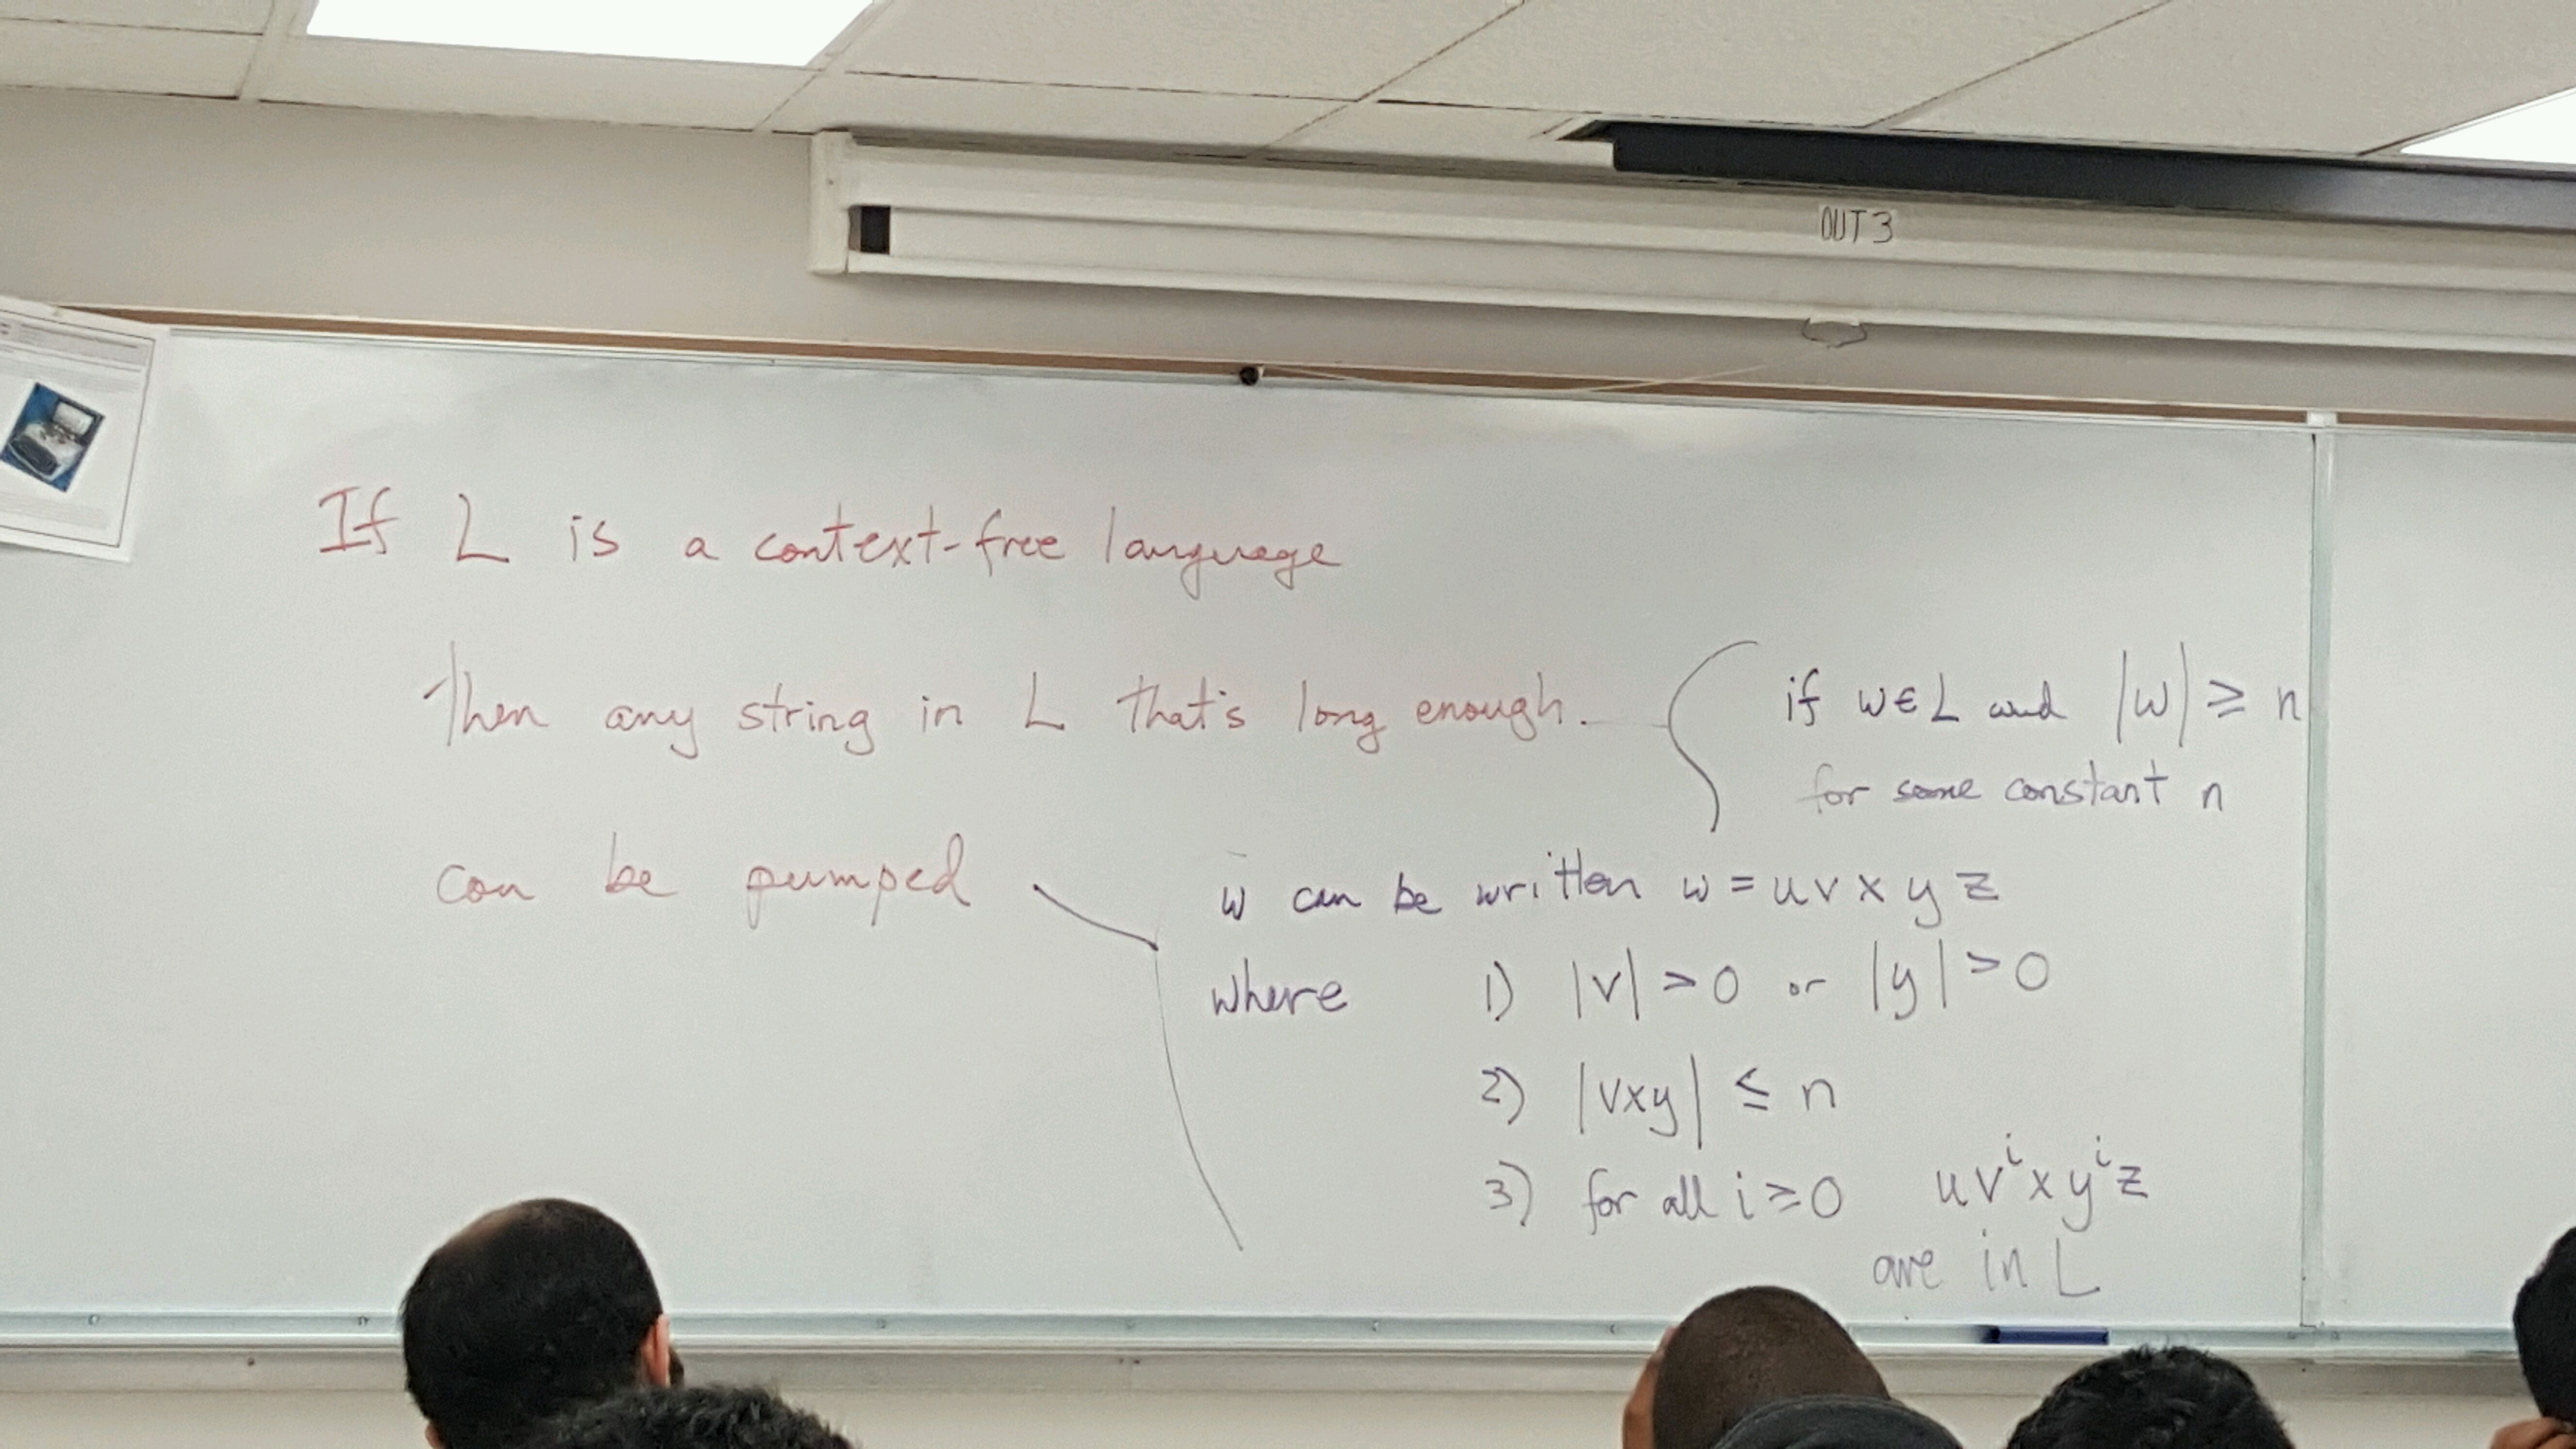 OUT 3
If L is a context-free language
Then any string in L that's long enough.
if w ∈ L and |w| ≥ n
for some constant n
can be pumped
w can be written w = u v x y z
where 1) |v| > 0 or |y| > 0
2) |vxy| ≤ n
3) for all i ≥ 0 uvⁱxyⁱz
are in L